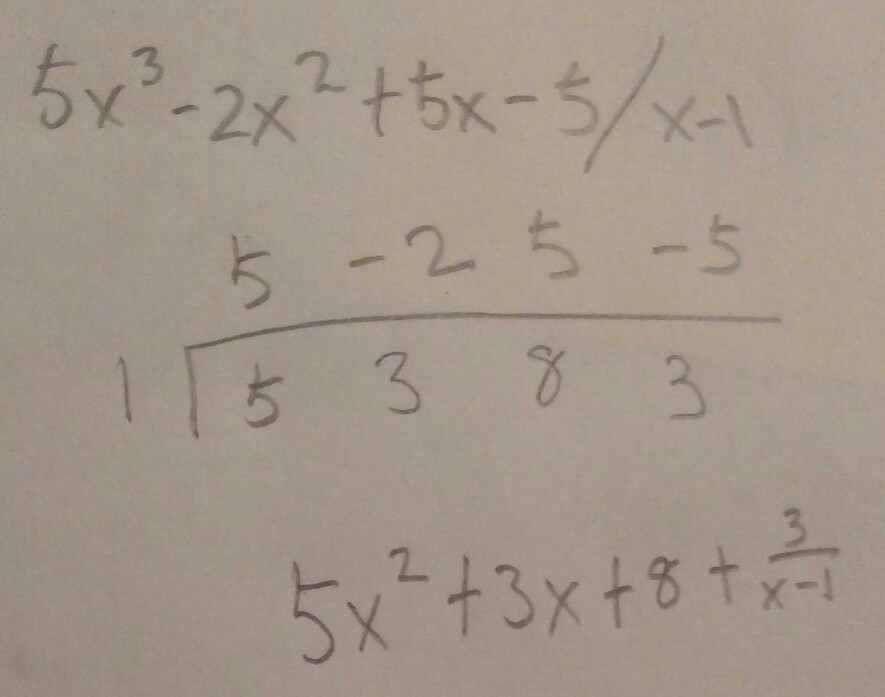 5x³-2x²+5x-5/x-1
5 -2 5 -5
1 5 3 8 3
5x²+3x+8+3/(x-1)